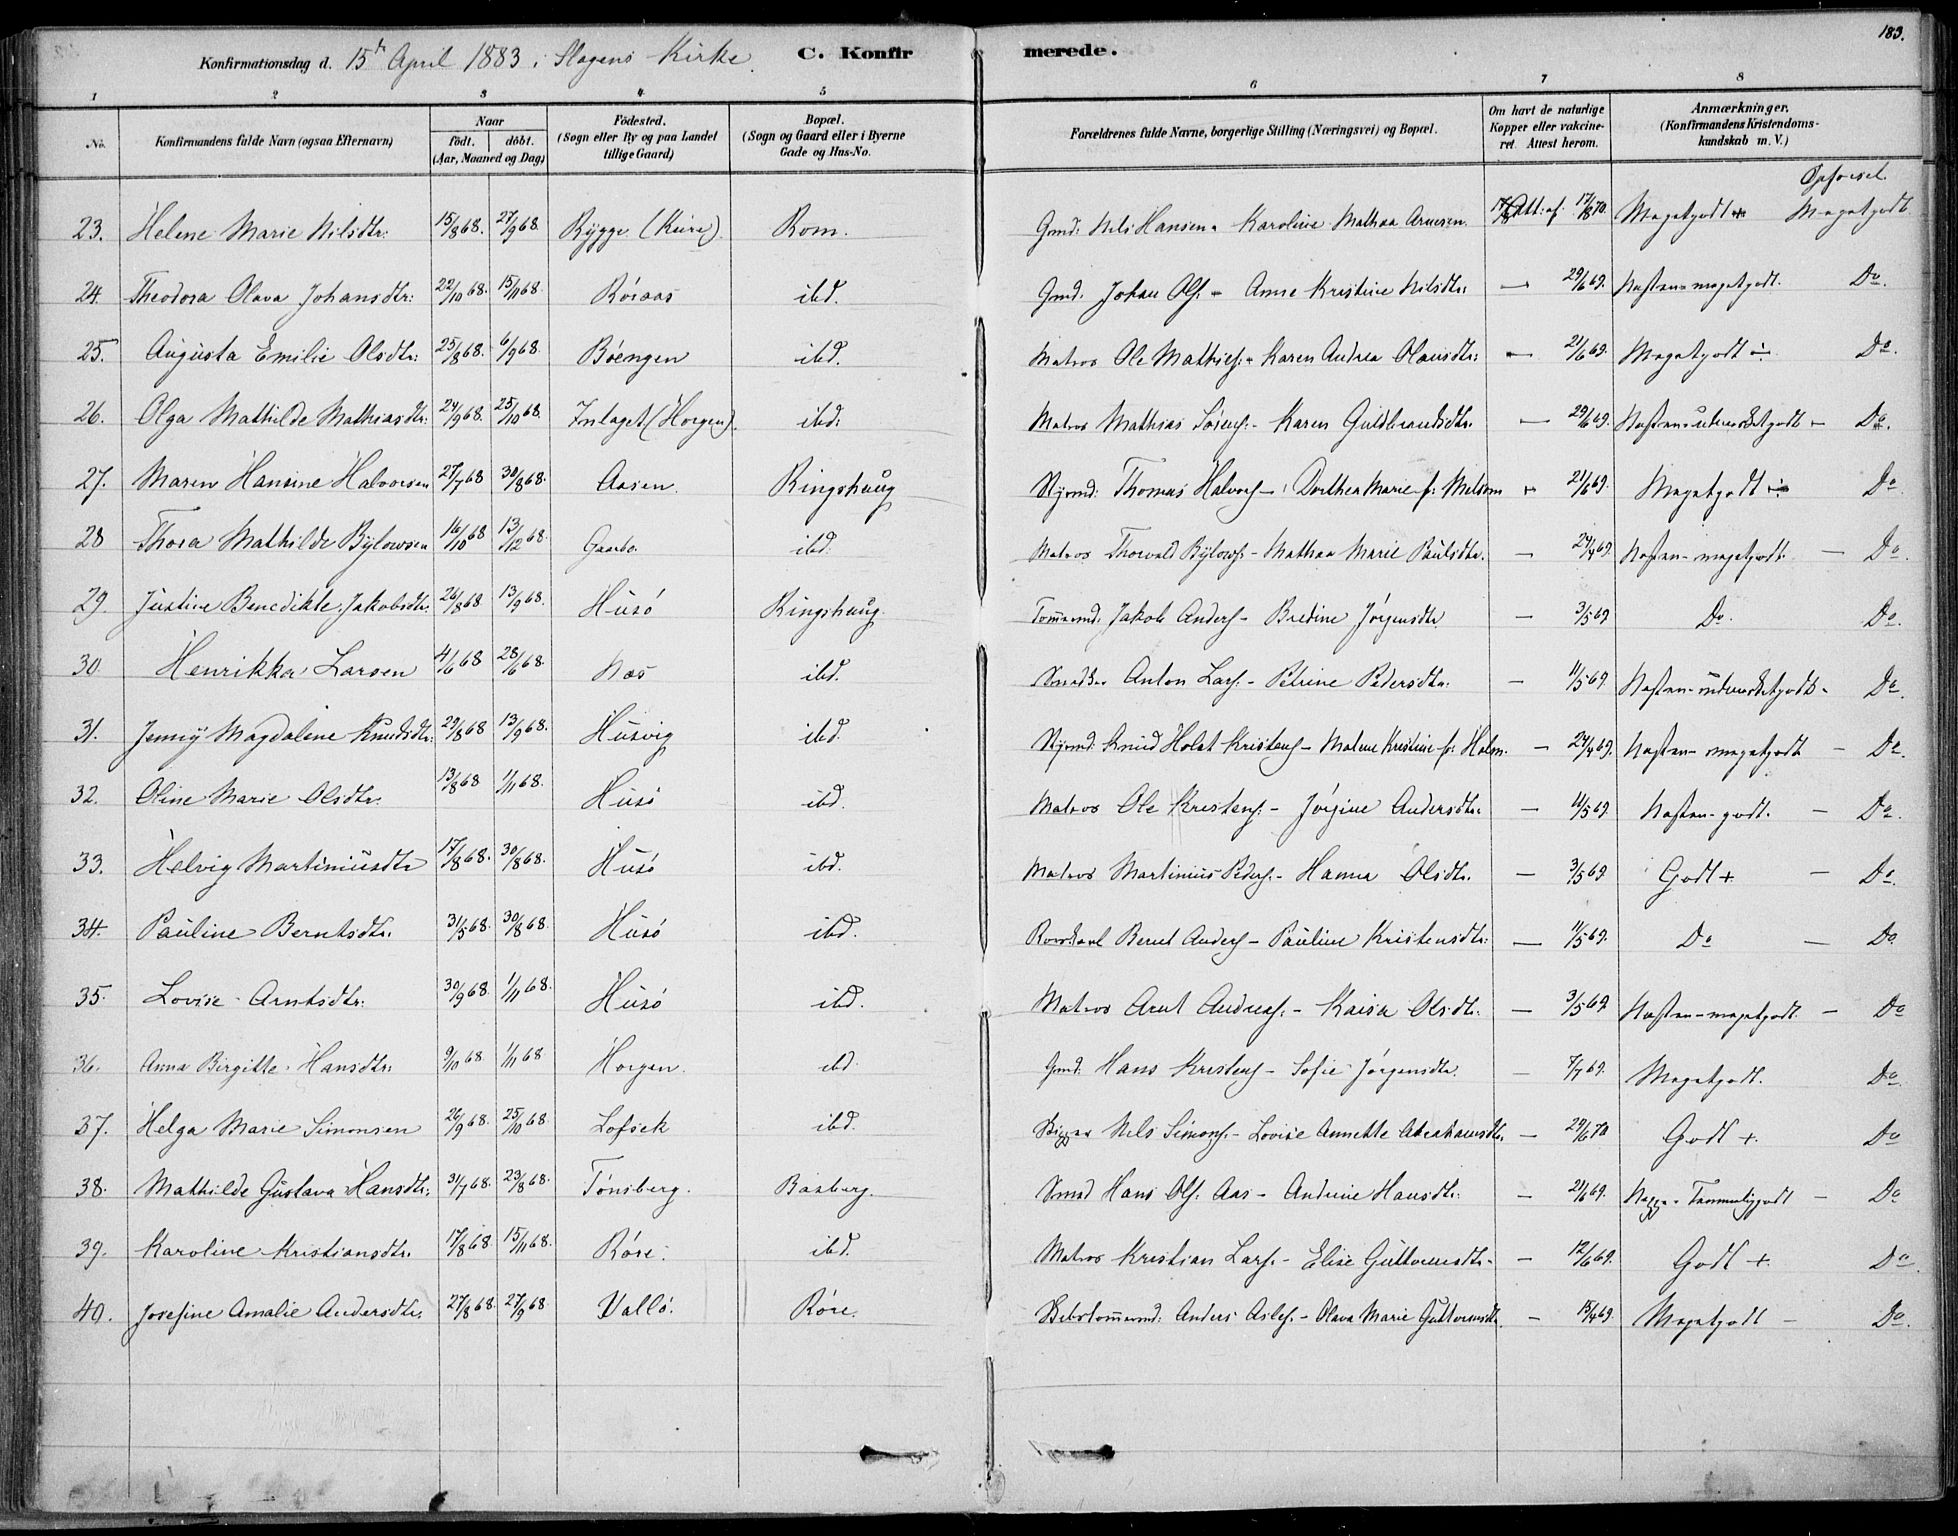 183.
Konfirmationsdag d. 15de April 1883 i Slagens Kirke. C. Konfirmerede.
1 2 3 4 5 6 7 8
No. Konfirmandens fulde Navn (ogsaa Efternavn) Naar født. døbt. (Aar, Maaned og Dag) Fødested. (Sogn eller By og paa Landet tillige Gaard) Bopæl. (Sogn og Gaard eller i Byerne Gade og Hus-No. Forældrenes fulde Navne, borgerlige Stilling (Næringsvei) og Bopæl. Om havt de naturlige Kopper eller vakcineret. Attest herom. Anmærkninger. (Konfirmandens Kristendomskundskab m. V.)
Opførsel.
23. Helene Marie Nilsdtr: 15/8 68. 27/9 68. Rygge (Kure) Rom. Gmd: Nels Hansen - Karoline Mathea Arnesen Att: af 17/8 70. Megetgodt + Megetgodt
24. Theodora Olava Johansdtr: 22/10 68. 15/11 68. Rösaas ibd. Gmd: Johan Ols. - Anne Kristine Nilsdtr: — 29/6 69. Næsten-megetgodt. Do.
25. Augusta Emilie Olsdtr: 25/8 68. 6/9 68. Böengen ibd. Matros Ole Mathies: - Karen Andrea Olausdtr: — 21/6 69. Megetgodt ÷ Do.
26. Olga Mathilde Mathiasdtr: 24/9 68. 25/10 68. Inlaget (Horgen) ibd: Matros Mathias Sörens: - Karen Guldbrandsdtr: — 29/6 69. Næsten-udmerketgodt — Do.
27. Maren Hansine Halvorsen 27/7 68 30/8 68. Aasen. Ringshaug Styrmd: Thomas Halvors - Dorthea Marie f: Melsom — 21/6 69. Megetgodt ÷ Do
28 Thora Mathilde Bylowsen 16/10 68 13/12 68. Gaarbo. ibd: Matros Thorvald Bylows - Mathea Marie Paulsdtr. — 24/4 69. Næsten-megetgodt. — Do.
29. Justine Benedikte Jakobsdtr. 26/8 68. 13/9 68. Husö Ringshaug. Tömmermd: Jakob Anders - Bredine Jörgensdtr — 3/5 69 Do. Do.
30. Henrikka Larsen 4/6 68 28/6 68. Næs ibd. Anton Lars: - Petrine Pedersdtr. — 11/5 69 Næsten-udmerketgodt - Do.
31. Jenny Magdalene Knudsdtr: 29/8 68 13/9 68. Husvig ibd. Styrmd: Knud Holst Kristens - Malene Kristine f: Holm. — 24/4 69. Næsten-megetgodt — Do
32. Oline Marie Olsdtr. 13/8 68 1/11 68. Husö ibd. Matros Ole Kristens: - Jörgine Andersdtr: — 11/5 69. Næsten-godt. — Do.
33. Helvig Martiniusdtr 17/8 68. 30/8 68. Husö ibd. Matros Martinius Peders. - Hanna Olsdtr. — 3/5 69 Godt + — Do.
34. Pauline Berntsdtr: 31/5 68. 30/8 68. Husö ibd. Bernt Anders - Pauline Kristensdtr: — 11/5 69. Do — Do
35. Lovise Arntsdtr: 30/9 68. 1/11 68. Husö ibd. Matros Arnt Andreas: - Kaisa Olsdtr. — 3/5 69 Næsten-megetgodt. — Do
36. Anna Birgitte Hansdtr: 9/10 68 1/11 68. Horgen. ibd. Gmd: Hans Kristens - Sofie Jörgensdtr. — 7/7 69. Megetgodt. Do.
37. Helga Marie Simonsen 26/9 68. 25/10 68. Lofsek ibd. Skipper Nels Simons. - Lovise Annette Abrahamsdtr. — 29/6 70 Godt + Do
38. Mathilde Gustava Hansdtr: 31/7 68. 23/8 68. Tönsberg. Basberg. Smed Hans Ols: Aas - Andrine Hansdtr: — 21/6 69. Neppe-Temmeliggodt — Do
39. Karoline Kristiansdtr. 17/8 68. 15/11 68. Röre. ibd. Matros Kristian Lars. - Elise Guttormsdtr. — 12/6 69. Godt + Do.
40. Josefine Amalie Andersdtr. 27/8 68. 27/9 68. Vallö. Röre. Skibstömmermd: Anders Asles. - Olava Marie Guttormsdtr. — 15/4 69. Megetgodt — Do.